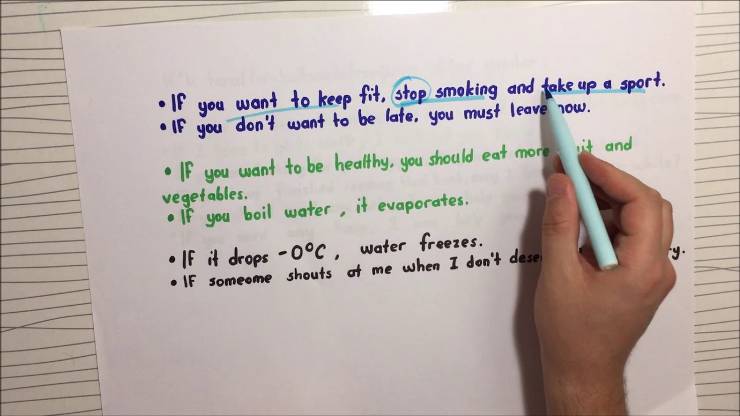 • IF you want to keep fit, stop smoking and take up a sport.
• IF you don't want to be late, you must leave now.
• IF you want to be healthy, you should eat more and
vegetables.
• IF you boil water, it evaporates.
• IF it drops -0°C, water freezes.
• IF someome shouts at me when I don't